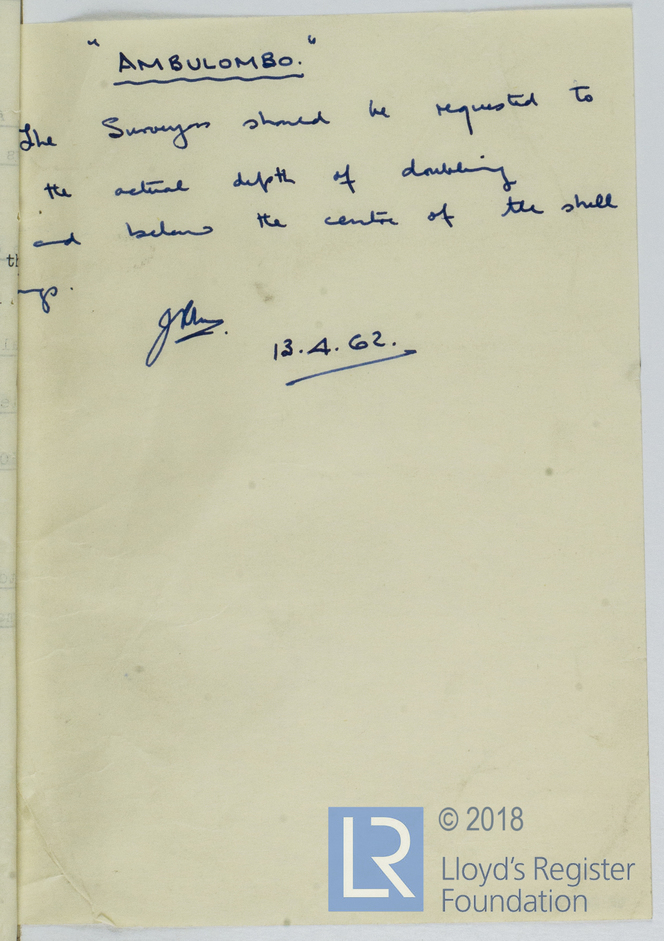 "AMBULOMBO."
The Surveyors should be requested to
the actual depth of doubling
and below the centre of the shell
13.4.62.
LR
© 2018
Lloyd's Register
Foundation